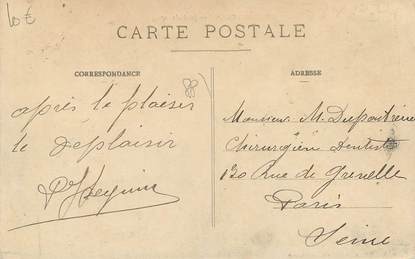 10€
CARTE POSTALE
CORRESPONDANCE
après le plaisir
le déplaisir
ADRESSE
Monsieur M.
Chirurgien Dentiste
130 Rue de Grenelle
Paris
Seine